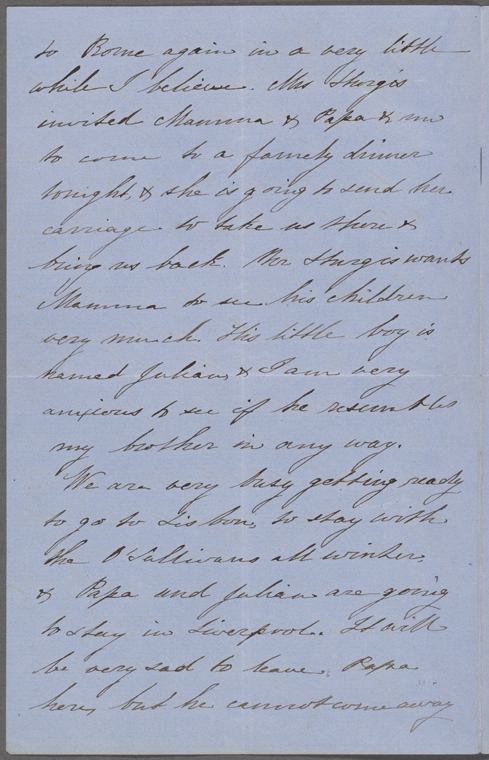 to Rome again in a very little
while I believe. Mrs Sturgis
invited Mamma & Papa & me
to come to a family dinner
tonight, & she is going to send her
carriage to take us there &
bring us back. Mr Sturgis wants
Mamma to see his children
very much. His little boy is
named Julian, & I am very
anxious to see if he resembles
my brother in any way.
We are very busy getting ready
to go to Lisbon, to stay with
the O'Sullivans all winter,
& Papa and Julian are going
to stay in Liverpool. It will
be very sad to leave Papa
here, but he cannot come away